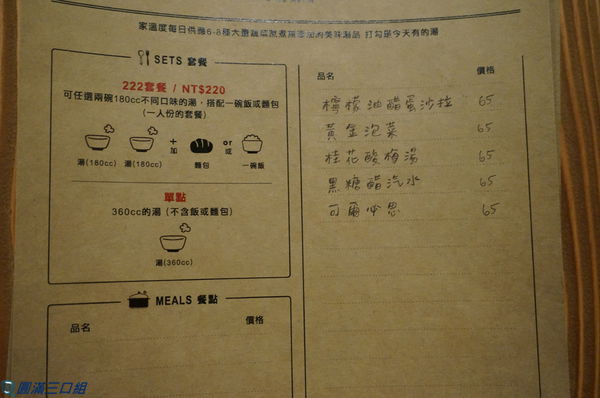 家溫度每日供應6-8種大量蔬菜熬煮無添加的美味湯品 打勾是今天有的湯
SETS 套餐
222套餐 / NT$220
可任選兩碗180cc不同口味的湯,搭配一碗飯或麵包
(一人份的套餐)
+ or
加 或
湯(180cc) 湯(180cc) 麵包 一碗飯
單點
360cc的湯 (不含飯或麵包)
湯(360cc)
MEALS 餐點
品名 價格
品名 價格
檸檬油醋蛋沙拉 65
黃金泡菜 65
桂花酸梅湯 65
黑糖醋汽水 65
可爾必思 65
圓滿三口組